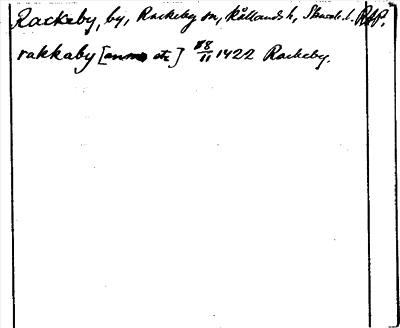 Rackeby, by, Rackeby sn, Kållands h, Skarab. l. RAP.
rakkaby [ etc] 18/11 1422 Rackeby.